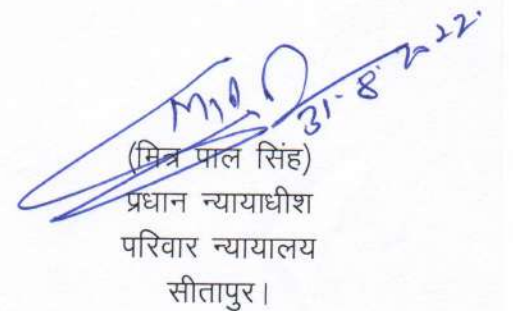 31.8.2022.
(मित्र पाल सिंह)
प्रधान न्यायाधीश
परिवार न्यायालय
सीतापुर।